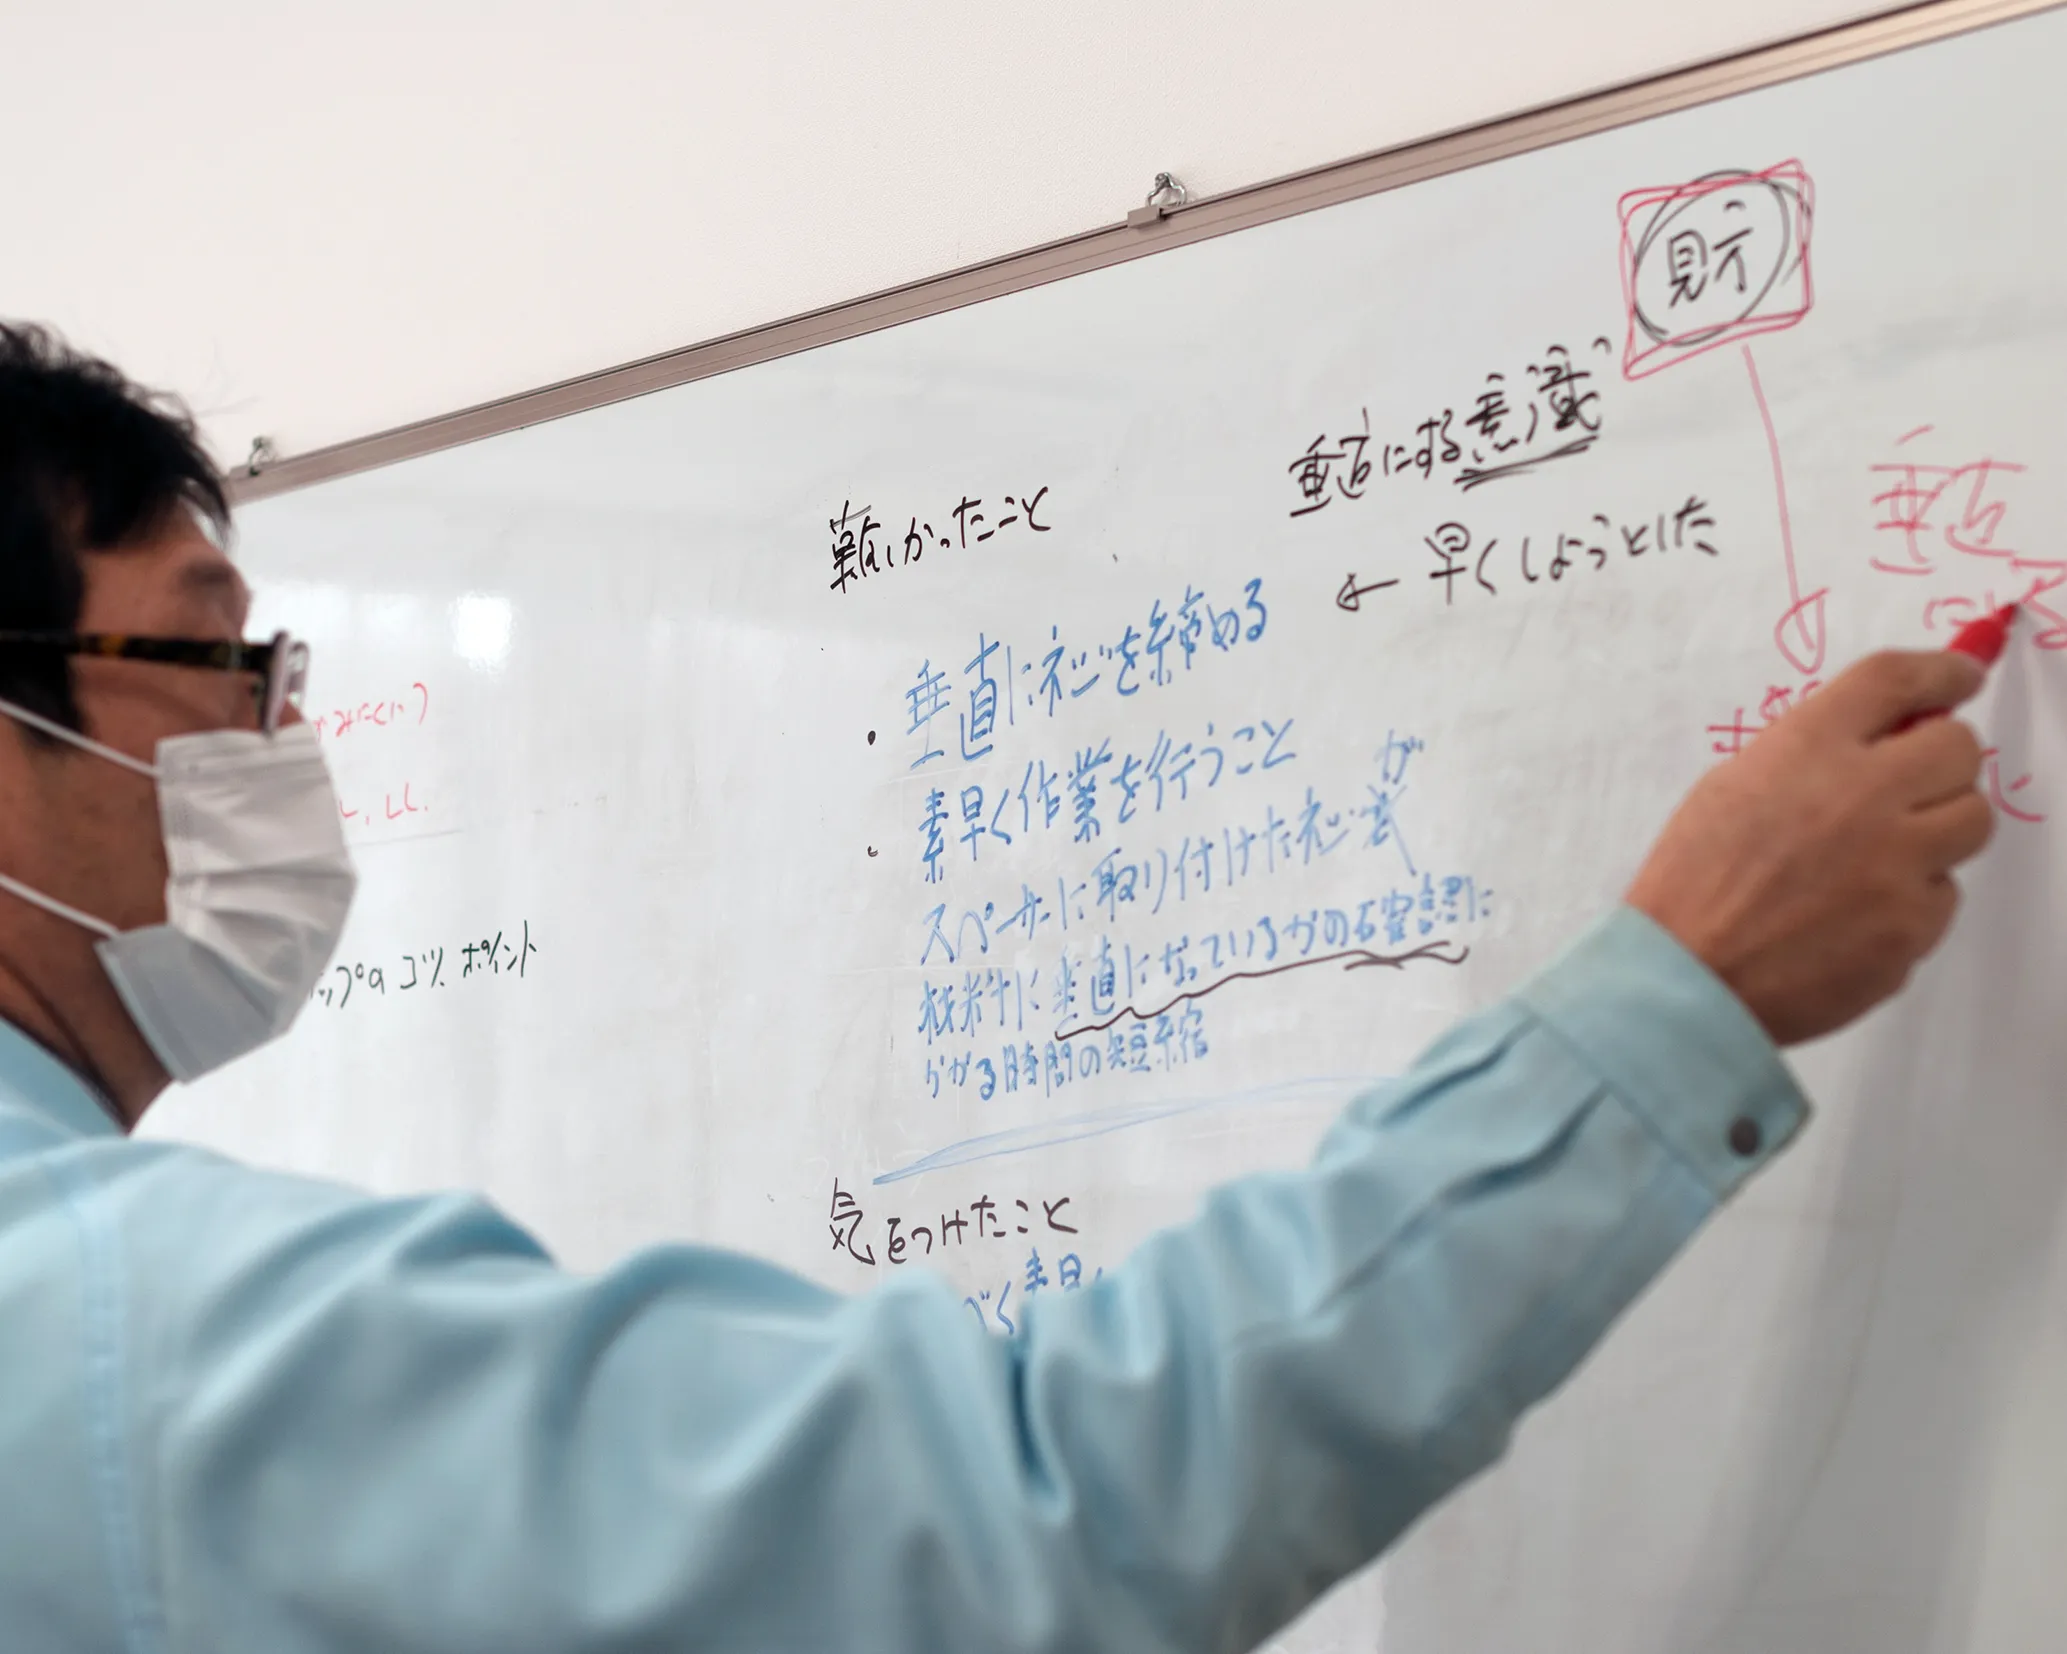 見方
垂直にする意識
← 早くしようとした
難しかったこと
・垂直にネジを締める
・素早く作業を行うこと
スペーサーに取り付けたネジが
材料に垂直になっているかの確認に
かかる時間の短縮
気をつけたこと
みにくい)
プのコツ、ポイント
垂直